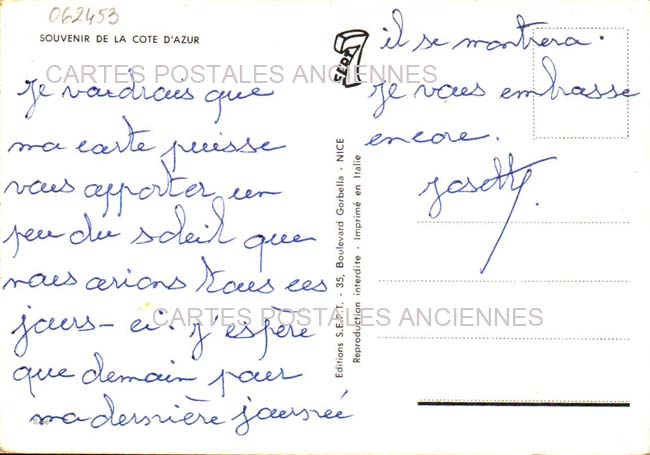 062453
SOUVENIR DE LA COTE D'AZUR
CARTES POSTALES ANCIENNES
Je voudrais que
ma carte puisse
vous apporter un
peu du soleil que
nous avions tous ces
jours-ci. J'espère
que demain pour
ma dernière journée
il se montrera.
Je vous embrasse
encore.
Josette
CARTES POSTALES ANCIENNES
SEPT
Editions S.E.P.T. - 35, Boulevard Gorbella - NICE
Reproduction interdite - Imprimé en Italie